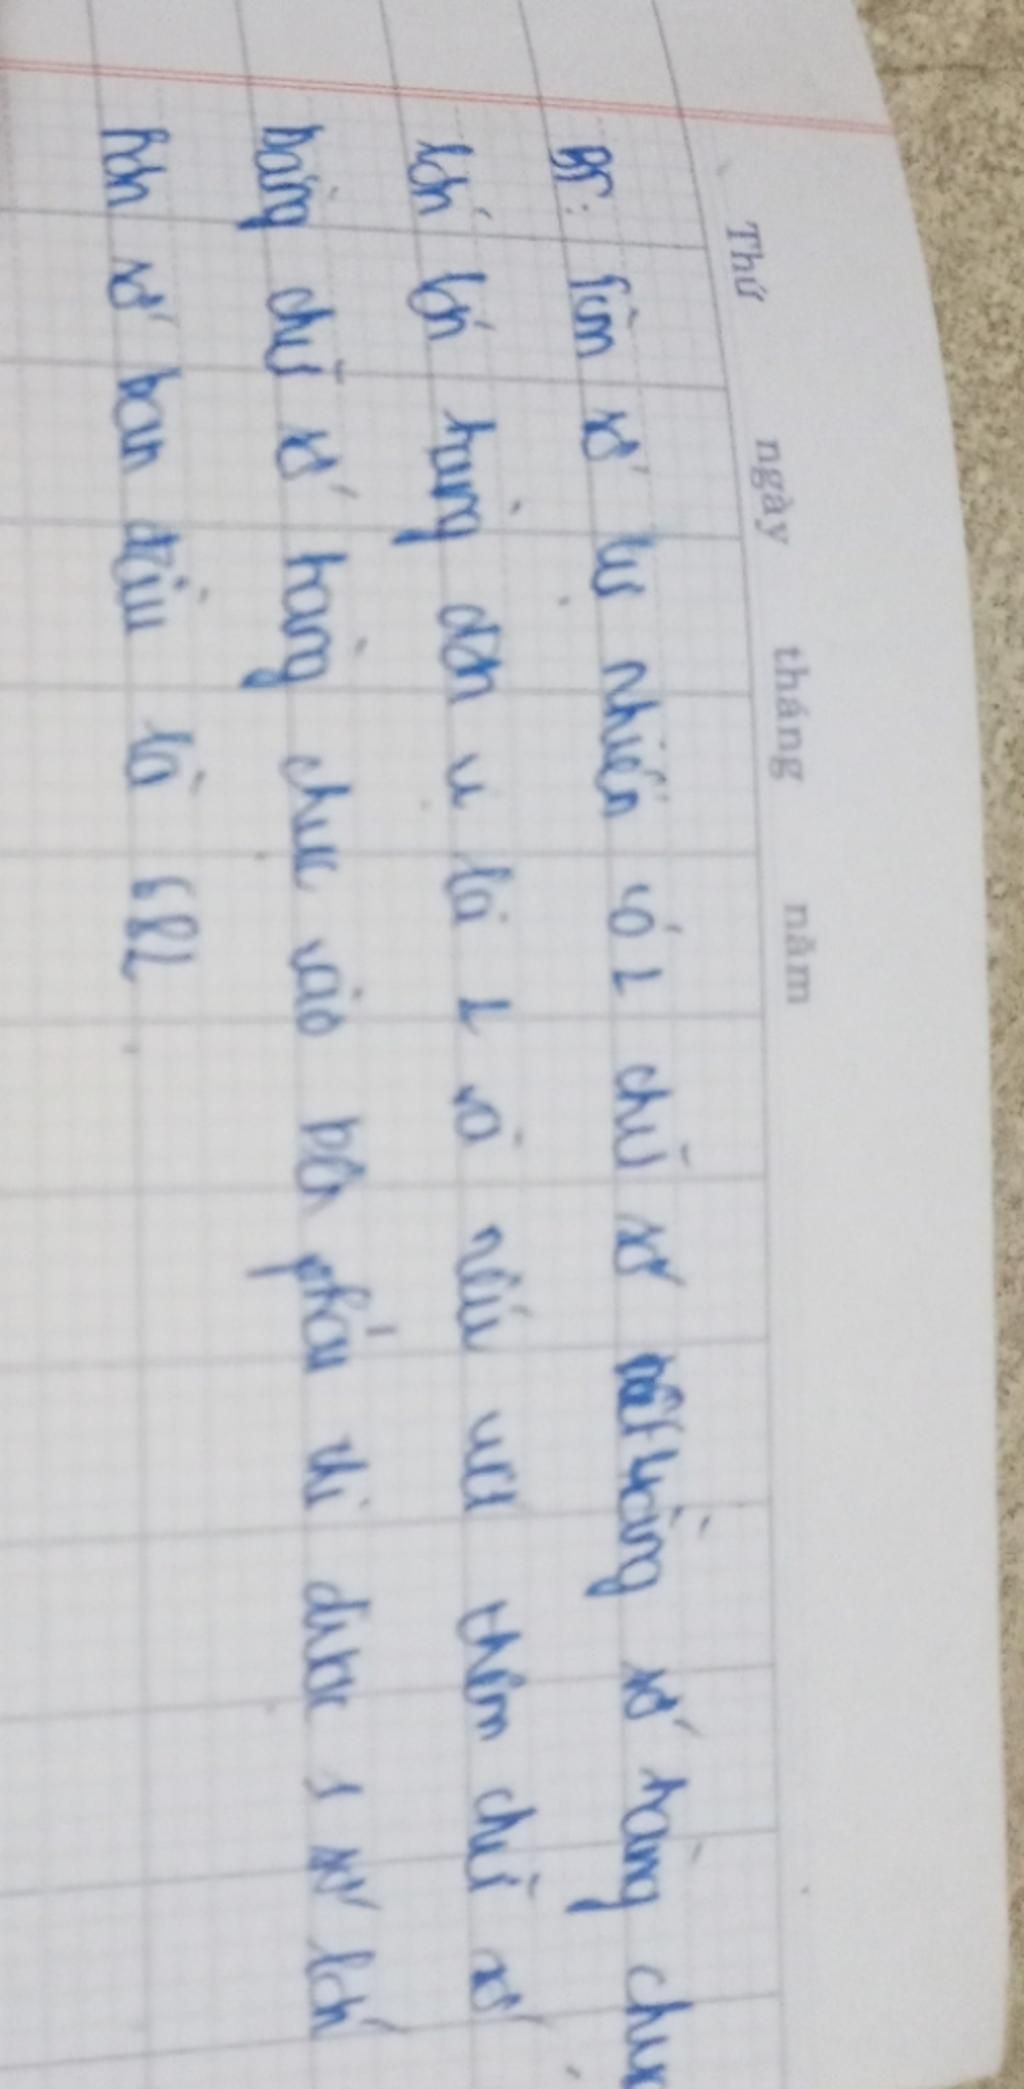 Thứ ngày tháng năm
B5: Tìm số tự nhiên có 2 chữ số biết rằng số hàng chục
lớn hơn hàng đơn vị là 2 và nếu viết thêm chữ số
bằng chữ số hàng chục vào bên phải thì được 1 số lớn
hơn số ban đầu là 682